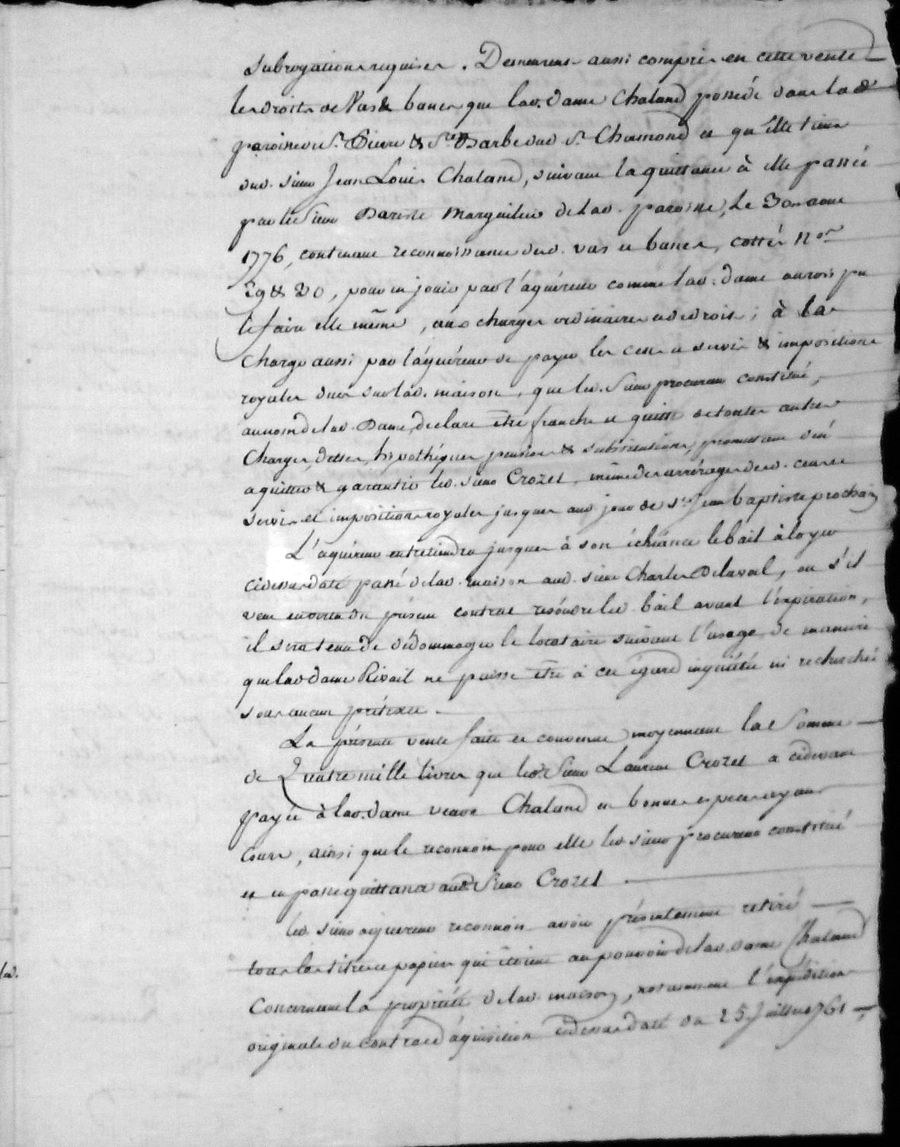 subrogations requises. Demeurent aussi compris en cette vente
les droits de Vas & bancs que lad. dame Chaland possède dans la d.
paroisse de St. Pierre & Ste. Barbe dud. St. Chamond et qu'elle tient
dud. sieur Jean Louis Chaland, suivant la quittance à elle passée
par le sieur Marguillier de lad. paroisse, le 30 aout
1776, contenant reconnoissance desd. vas et bancs, cottés nos.
29 & 30, pour en jouir par l'aquéreur comme lad. dame auroit pu
le faire elle même, aux charges ordinaires et de droit; à la
charge aussi par l'aquéreur de payer les cens et servis & impositions
royales dues sur lad. maison, que led. sieur procureur constitué,
au nom de lad. Dame, déclare être franche et quitte de toutes autres
charges, dettes, hypothéques, pensions & substitutions, promettant d'en
aquitter & garantir led. sieur Crozet, même des arrérages desd. cens et
servis et impositions royales jusques au jour de St. Jean baptiste prochain
L'aquéreur entretiendra jusques à son échéance le bail à loyer
cidessus daté passé de lad. maison aud. sieur Charles Delaval, ou s'il
veut en vertu du présent contrat résoudre led. bail avant l'expiration,
il sera tenu de dédommager le locataire suivant l'usage de maniere
que lad. dame Rivail ne puisse être à cet égard inquiétée ni recherchée
sous aucun prétexte.
La présente vente faite et convenue moyennant la somme
de Quatre mille livres que led. Sieur Laurent Crozet a cidevant
payée à lad. dame veuve Chaland en bonnes especes ayant
cours, ainsi que le reconnoit pour elle led. sieur procureur constitué
et en passe quittance aud. Sieur Crozet
led. sieur aquéreur reconnoit avoir présentement retiré
tous les titres et papiers qui étoient au pouvoir de lad. dame Chaland
concernant la propriété de lad. maison, notamment l'expédition
originale du contrat d'aquisition cidessus daté du 25 Juillet 1761,